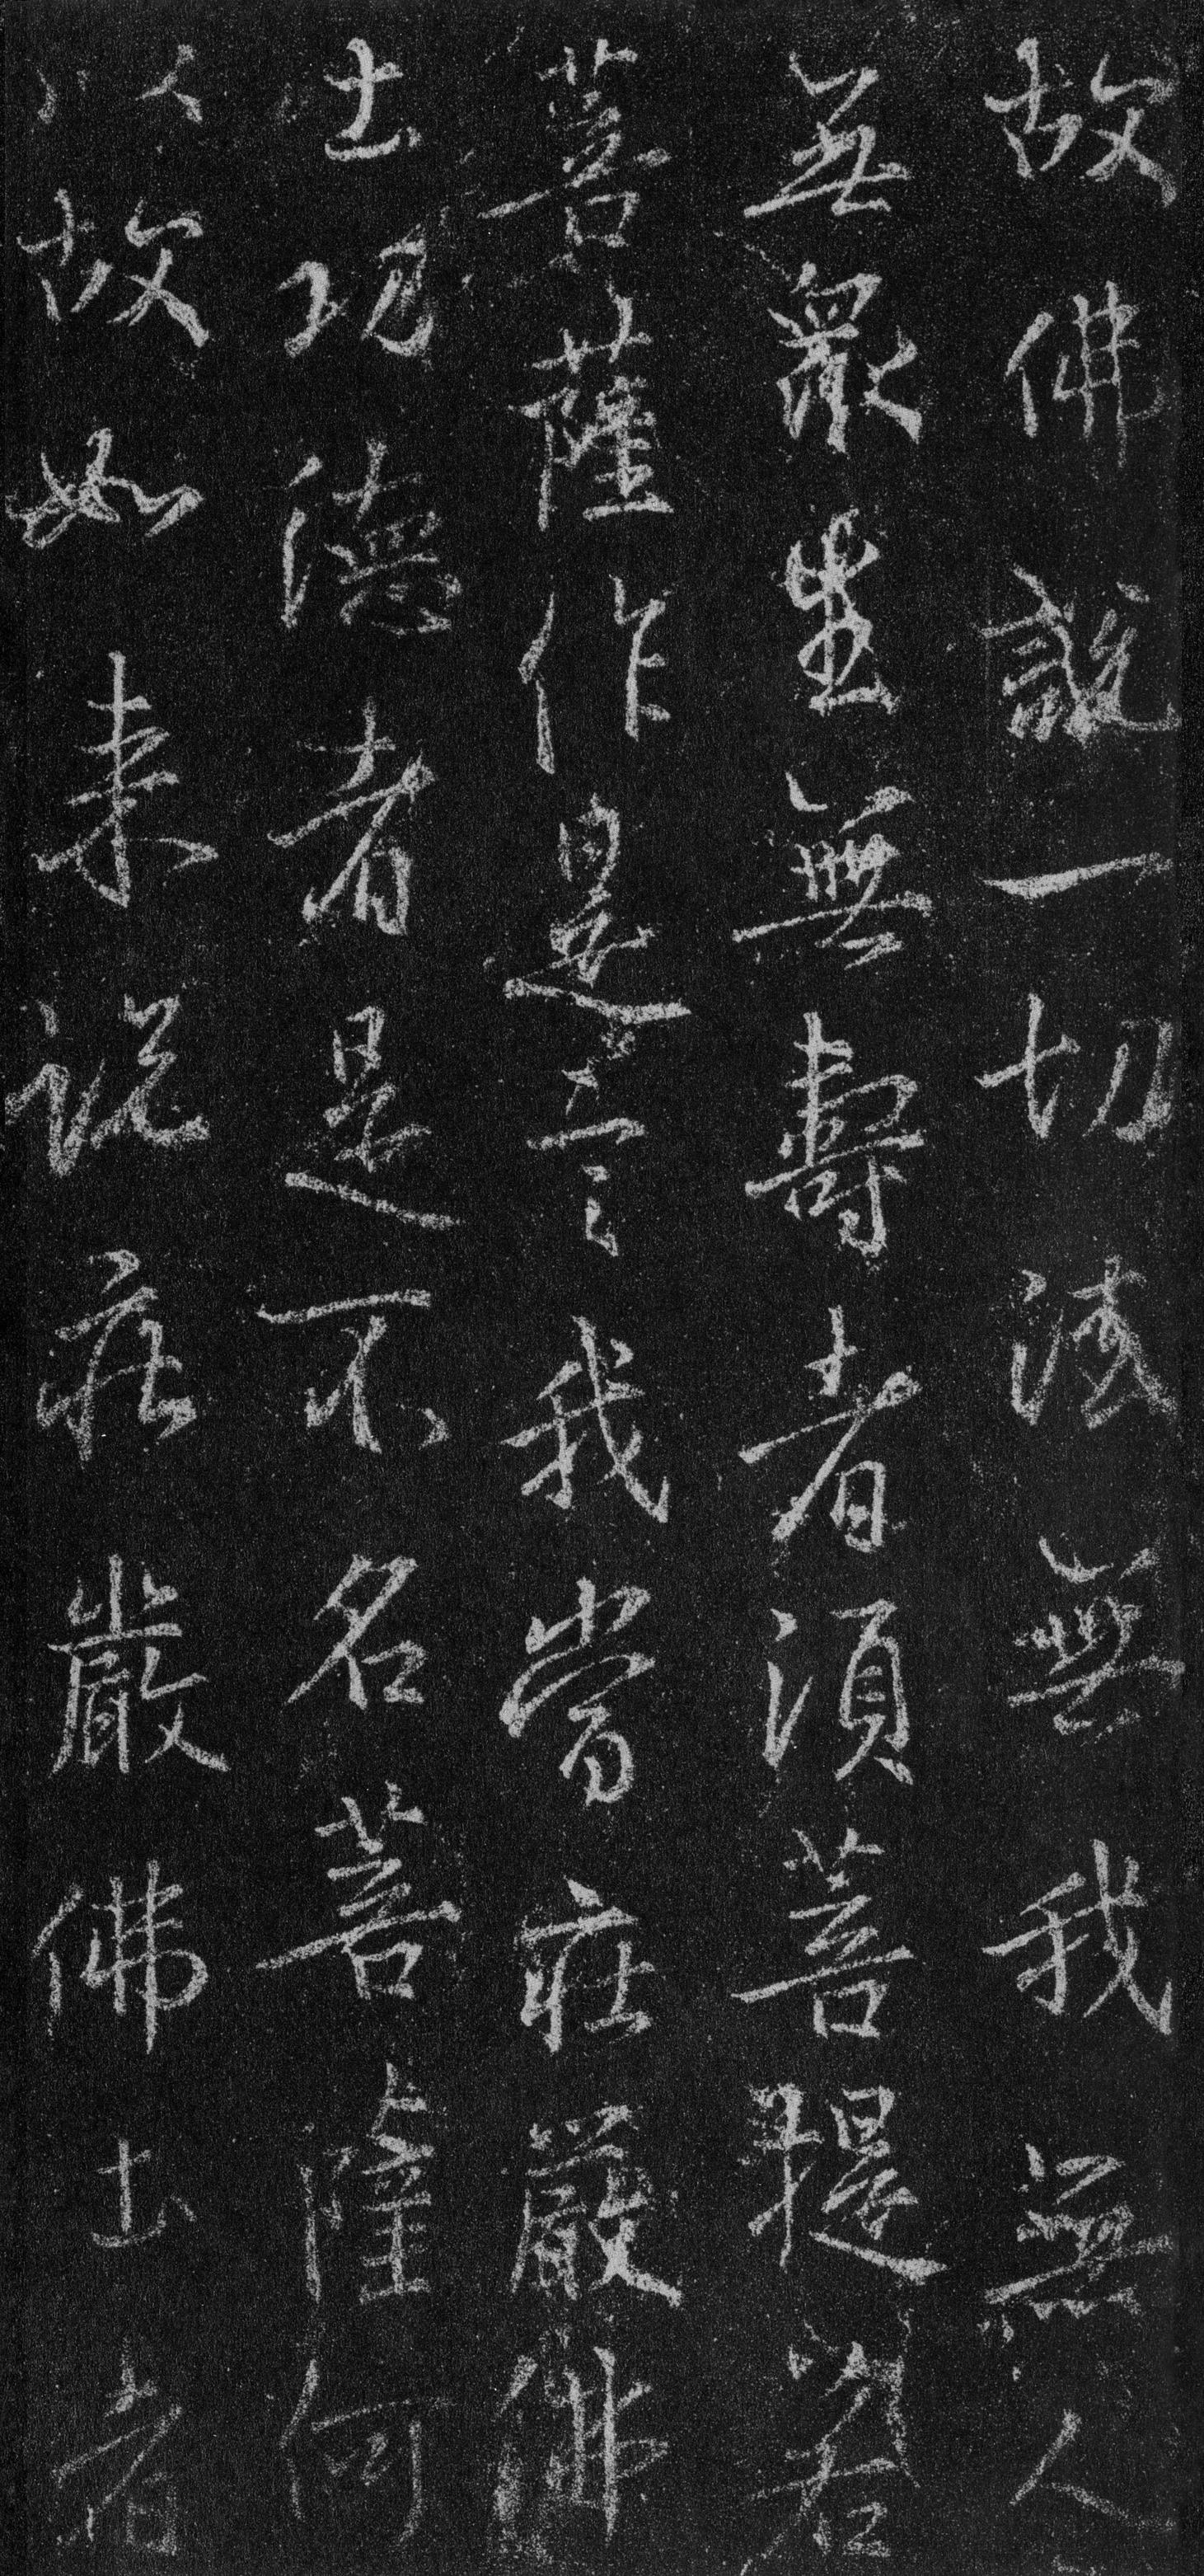 故佛說一切法無我無人
無衆生無壽者須菩提若
菩薩作是言我當莊嚴佛
土功德者是不名菩薩何
以故如來說莊嚴佛土者